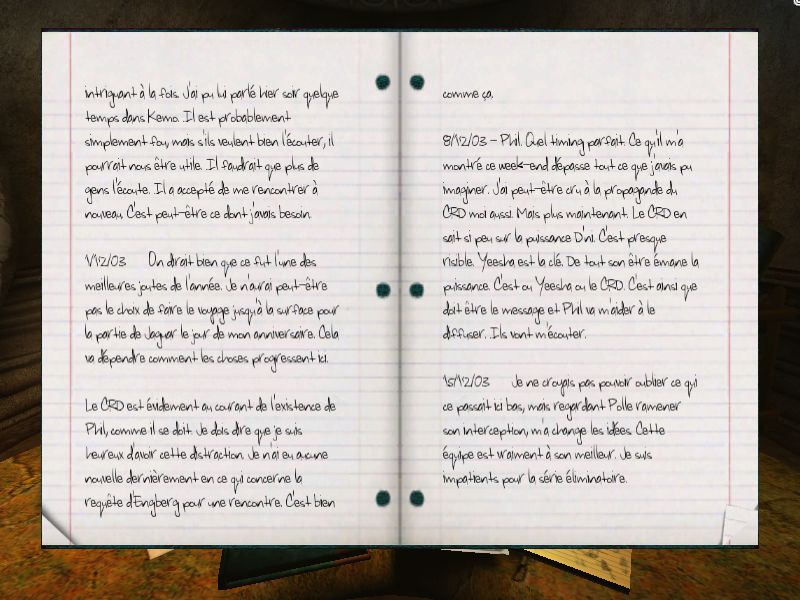 intriguant à la fois. J'ai pu lui parlé hier soir quelque
temps dans Kemo. Il est probablement
simplement fou, mais s'ils veulent bien l'écouter, il
pourrait nous être utile. Il faudrait que plus de
gens l'écoute. Il a accepté de me rencontrer à
nouveau. C'est peut-être ce dont j'avais besoin.
1/12/03 On dirait bien que ce fut l'une des
meilleures joutes de l'année. Je n'aurai peut-être
pas le choix de faire le voyage jusqu'à la surface pour
la partie de Jaguar le jour de mon anniversaire. Cela
va dépendre comment les choses progressent ici.
Le CRD est évidement au courant de l'existence de
Phil, comme il se doit. Je dois dire que je suis
heureux d'avoir cette distraction. Je n'ai eu aucune
nouvelle dernièrement en ce qui concerne la
requête d'Engberg pour une rencontre. C'est bien
comme ça.
8/12/03 – Phil. Quel timing parfait. Ce qu'il m'a
montré ce week-end dépasse tout ce que j'avais pu
imaginer. J'ai peut-être cru à la propagande du
CRD moi aussi. Mais plus maintenant. Le CRD en
sait si peu sur la puissance D'ni. C'est presque
risible. Yeesha est la clé. De tout son être émane la
puissance. C'est ou Yeesha ou le CRD. C'est ainsi que
doit être le message et Phil va m'aider à le
diffuser. Ils vont m'écouter.
15/12/03 Je ne croyais pas pouvoir oublier ce qui
ce passait ici bas, mais regardant Polle ramener
son interception, m'a changé les idées. Cette
équipe est vraiment à son meilleur. Je suis
impatients pour la série éliminatoire.